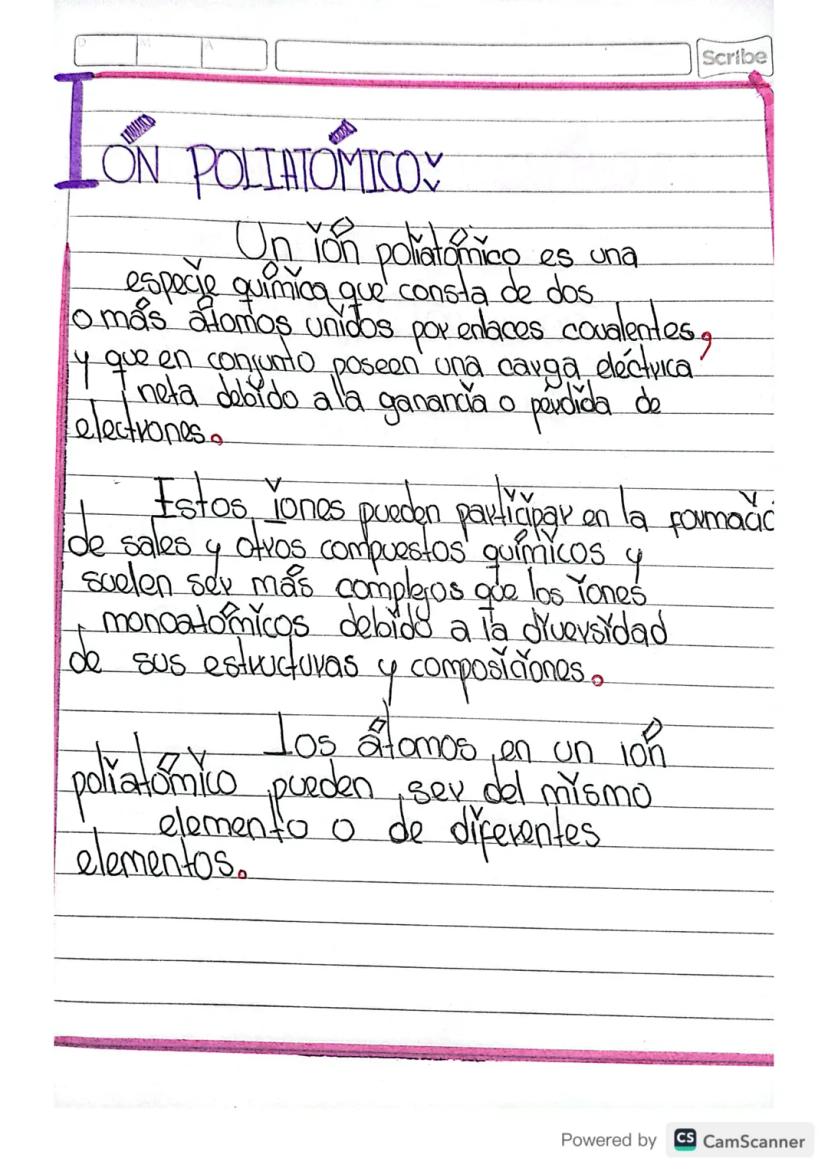 D M A Scribe
IÓN POLIATÓMICO:
Un ión poliatómico es una
especie química que consta de dos
o más átomos unidos por enlaces covalentes,
y que en conjunto poseen una carga eléctrica
neta debido a la ganancia o pérdida de
electrones.
Estos iones pueden participar en la formació
de sales y otros compuestos químicos y
suelen ser más complejos que los iones
monoatómicos debido a la diversidad
de sus estructuras y composiciones.
Los átomos en un ión
poliatómico pueden ser del mismo
elemento o de diferentes
elementos.
Powered by CS CamScanner